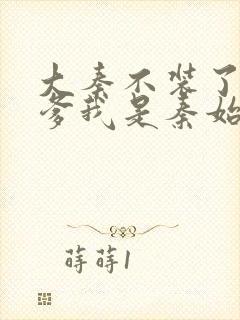 大秦不装了
爹我是秦始
蒔蒔1